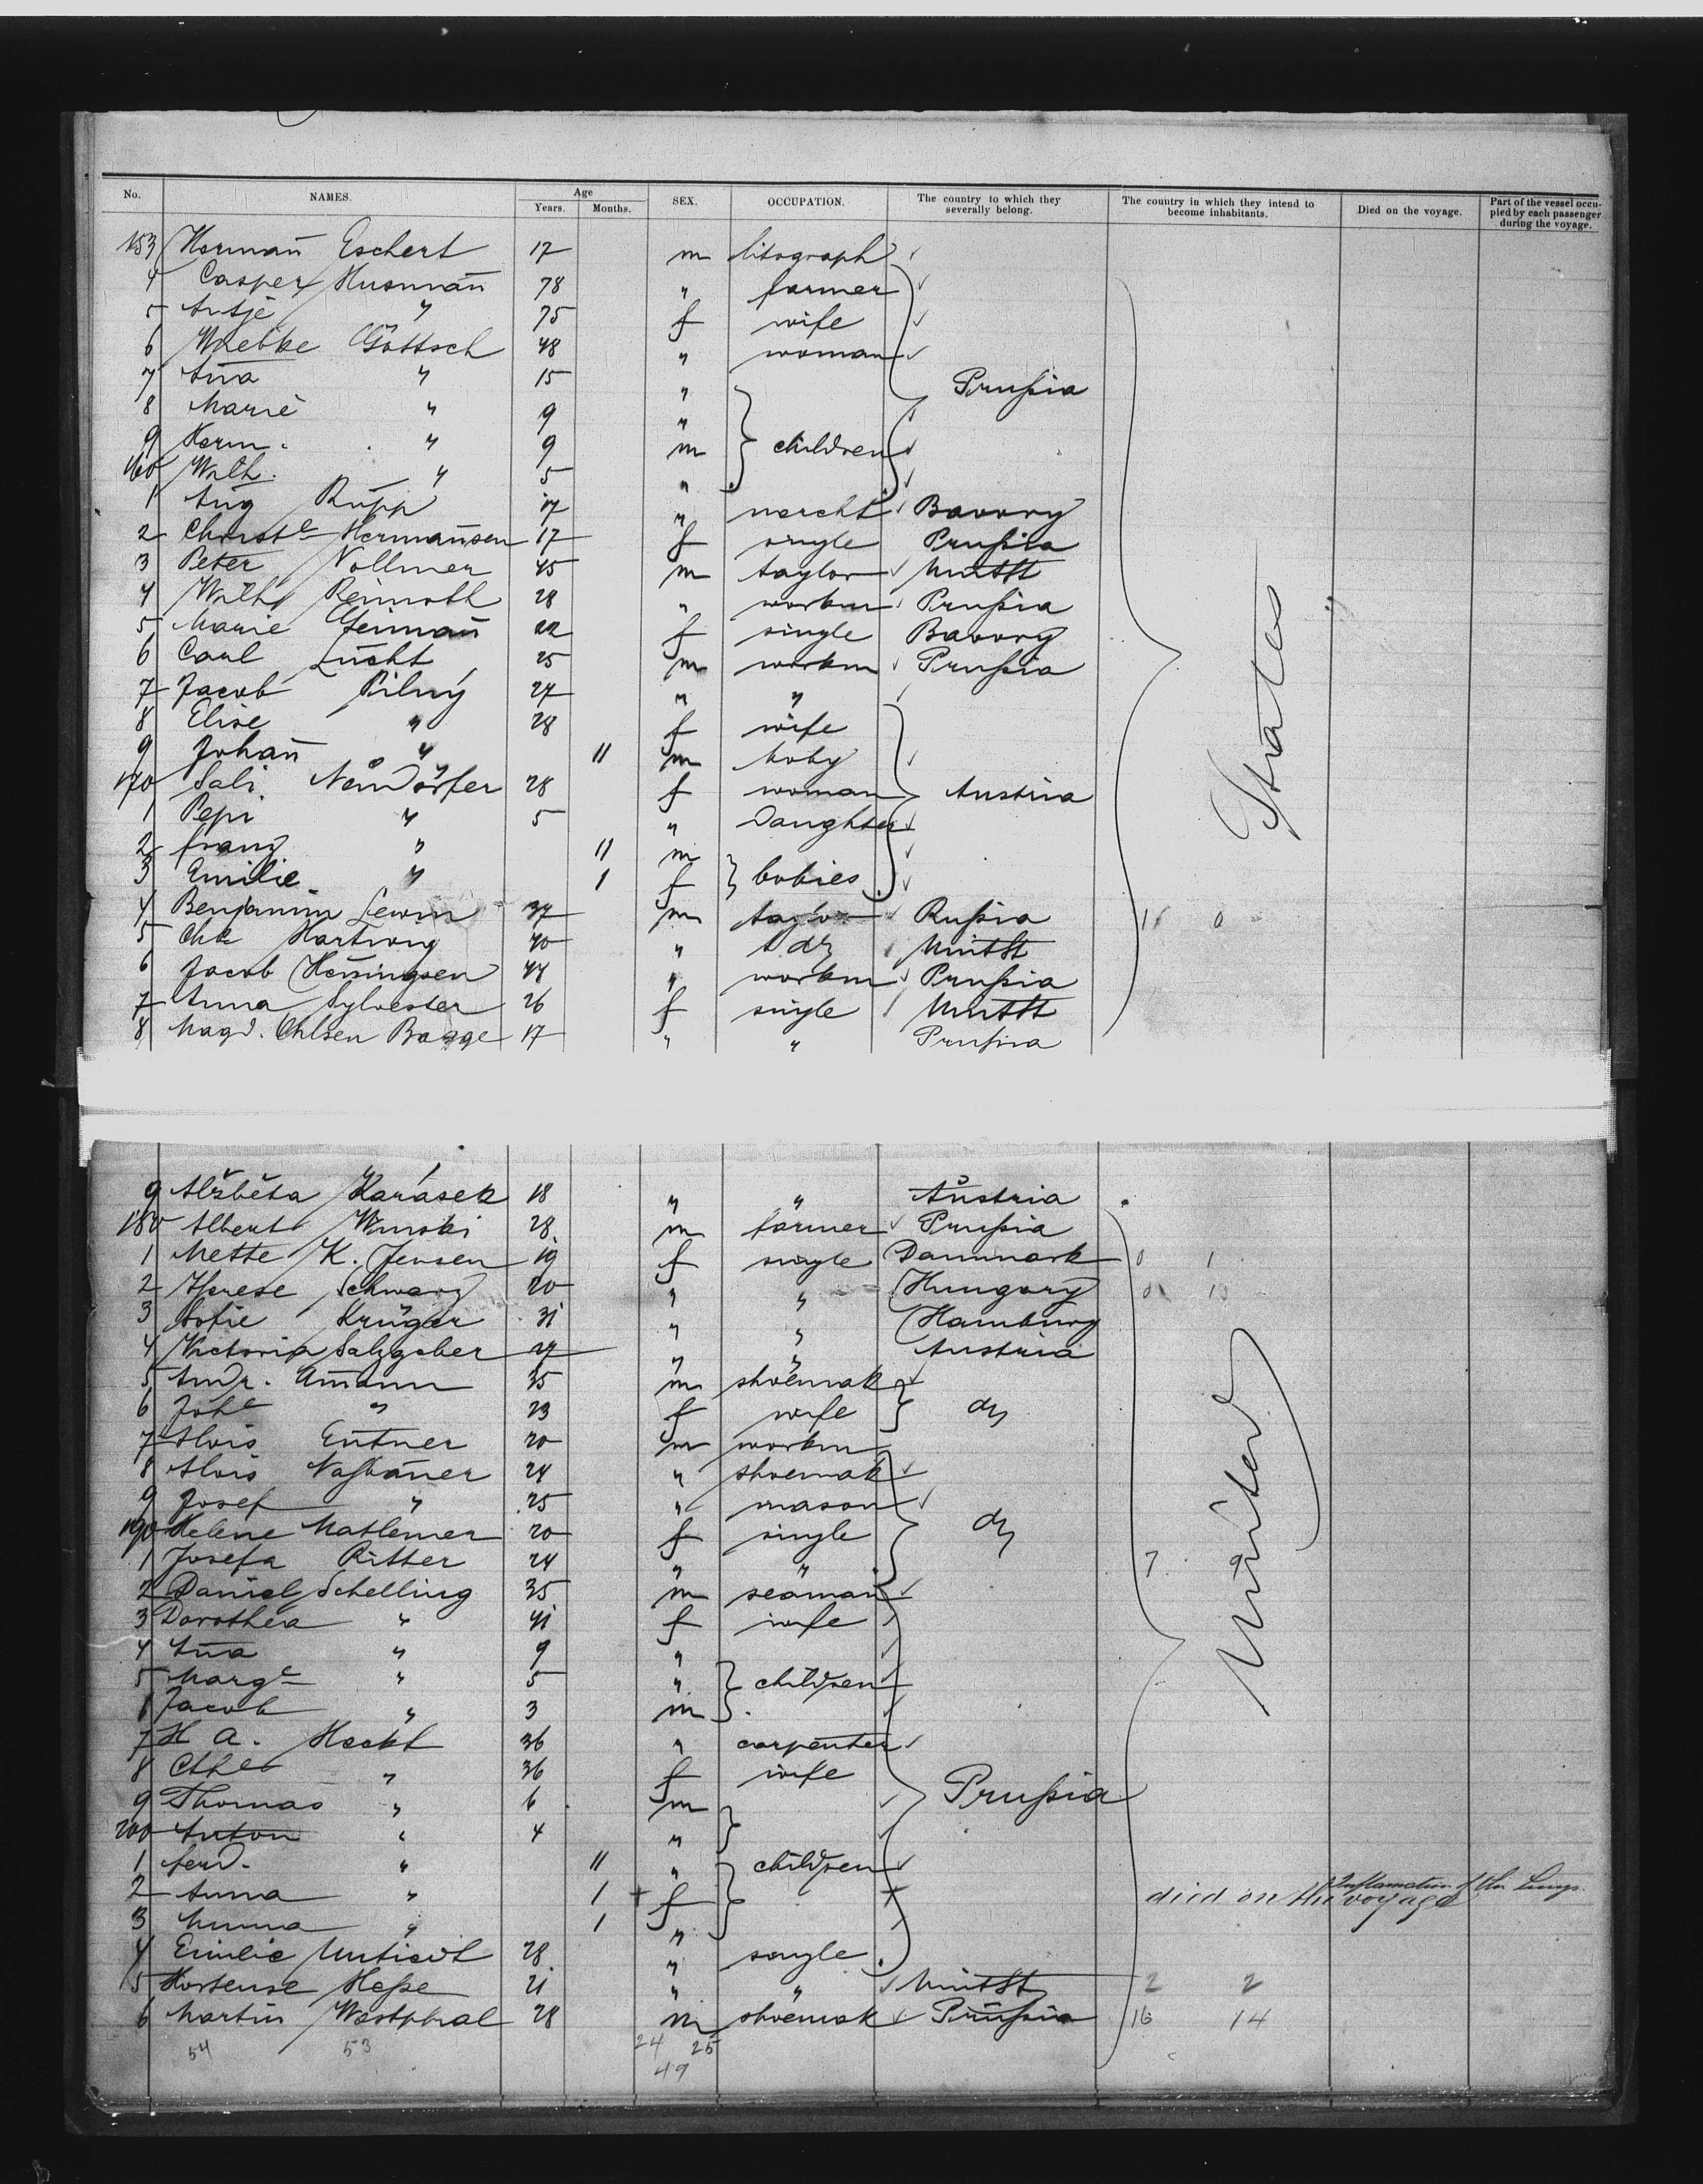 No. NAMES. Age Years. Months. SEX. OCCUPATION. The country to which they severally belong. The country in which they intend to become inhabitants. Died on the voyage. Part of the vessel occupied by each passenger during the voyage.
153 Hermañ Eschert 17 m litograph
4 Casper Husmañ 78 " farmer
5 Antje " 75 f wife
6 Wiebke Göttsch 48 " woman
7 Aña " 15 " Prußia
8 Marie " 9 "
9 Herm. " 9 m children
160 Wilh. " 5 "
1 Aug Rupp 17 " march't Bavory
2 Christe Hermañsen 17 f single Prußia
3 Peter Vollmer 45 m taylor UnitSt
4 Wilh. Reimoth 28 " workm Prußia
5 Marie Geimañ 22 f single Bavory
6 Carl Lucht 25 m workm Prußia
7 Jacob Pilny 27 " "
8 Elise " 28 f wife
9 Johañ " 11 m boby
170 Sali Neudörfer 28 f woman Austria
1 Pepi " 5 " Daughter
2 franz " 11 m
3 Emilie " 1 f bobies
4 Benjamin Lewin 37 m taylor Rußia 1 0
5 Chr Hartwig 40 " do UnitSt
6 Jacob Heñingsen 44 " workm Prußia
7 Anna Sylvester 26 f single UnitSt
8 Magd. Ohlsen Bagge 17 " " Prußia
States
9 Alžběta Karásek 18 " " Austria
180 Albert Winski 28 m farmer Prußia
1 Mette K. Jensen 19 f single Danmark 0 1
2 Therese Schwarz 20 " " Hungary
3 Sofie Krüger 31 " " Hamburg
4 Victoria Salzgeber 27 " " Austria
5 Andr. Amann 35 m shoemak
6 Johe " 23 f wife do
7 Alois Entner 20 m workm
8 Alois Naßbauer 24 " shoemak
9 Josef " 25 " mason
190 Helene Matlener 20 f single do
1 Josefa Ritter 24 " " 7 9
2 Daniel Schelling 35 m seaman
3 Dorothea " 41 f wife
4 Aña " 9 "
5 Marge " 5 " children
6 Jacob " 3 m
7 H A. Heckt 36 " carpenter
8 Cthe " 36 f wife
9 Thomas " 6 m Prußia
200 Anton " 4 "
1 ferd. " 11 " children
2 Anna " 1 + f died on the voyage Inflamation of the Lungs.
3 Minna " 1 "
4 Emilie 28 " single
5 Hortense Heße 21 " " UnitSt 2 2
6 Martin Westphal 28 m shoemak Prußia 16 14
United
54 53 24 25
49